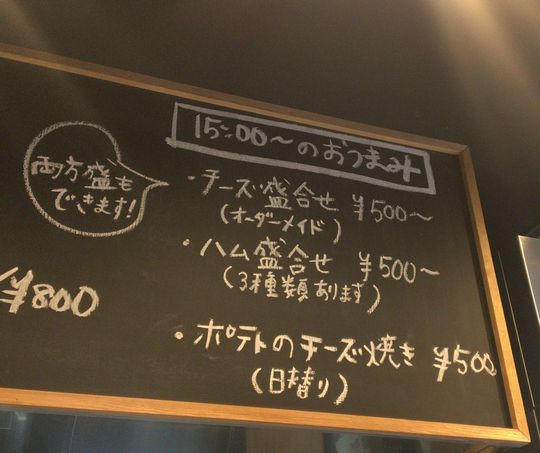 15:00〜のおつまみ
両方盛も
できます!
・チーズ盛合せ ¥500〜
(オーダーメイド)
・ハム盛合せ ¥500〜
(3種類あります)
¥800
・ポテトのチーズ焼き ¥500
(日替り)